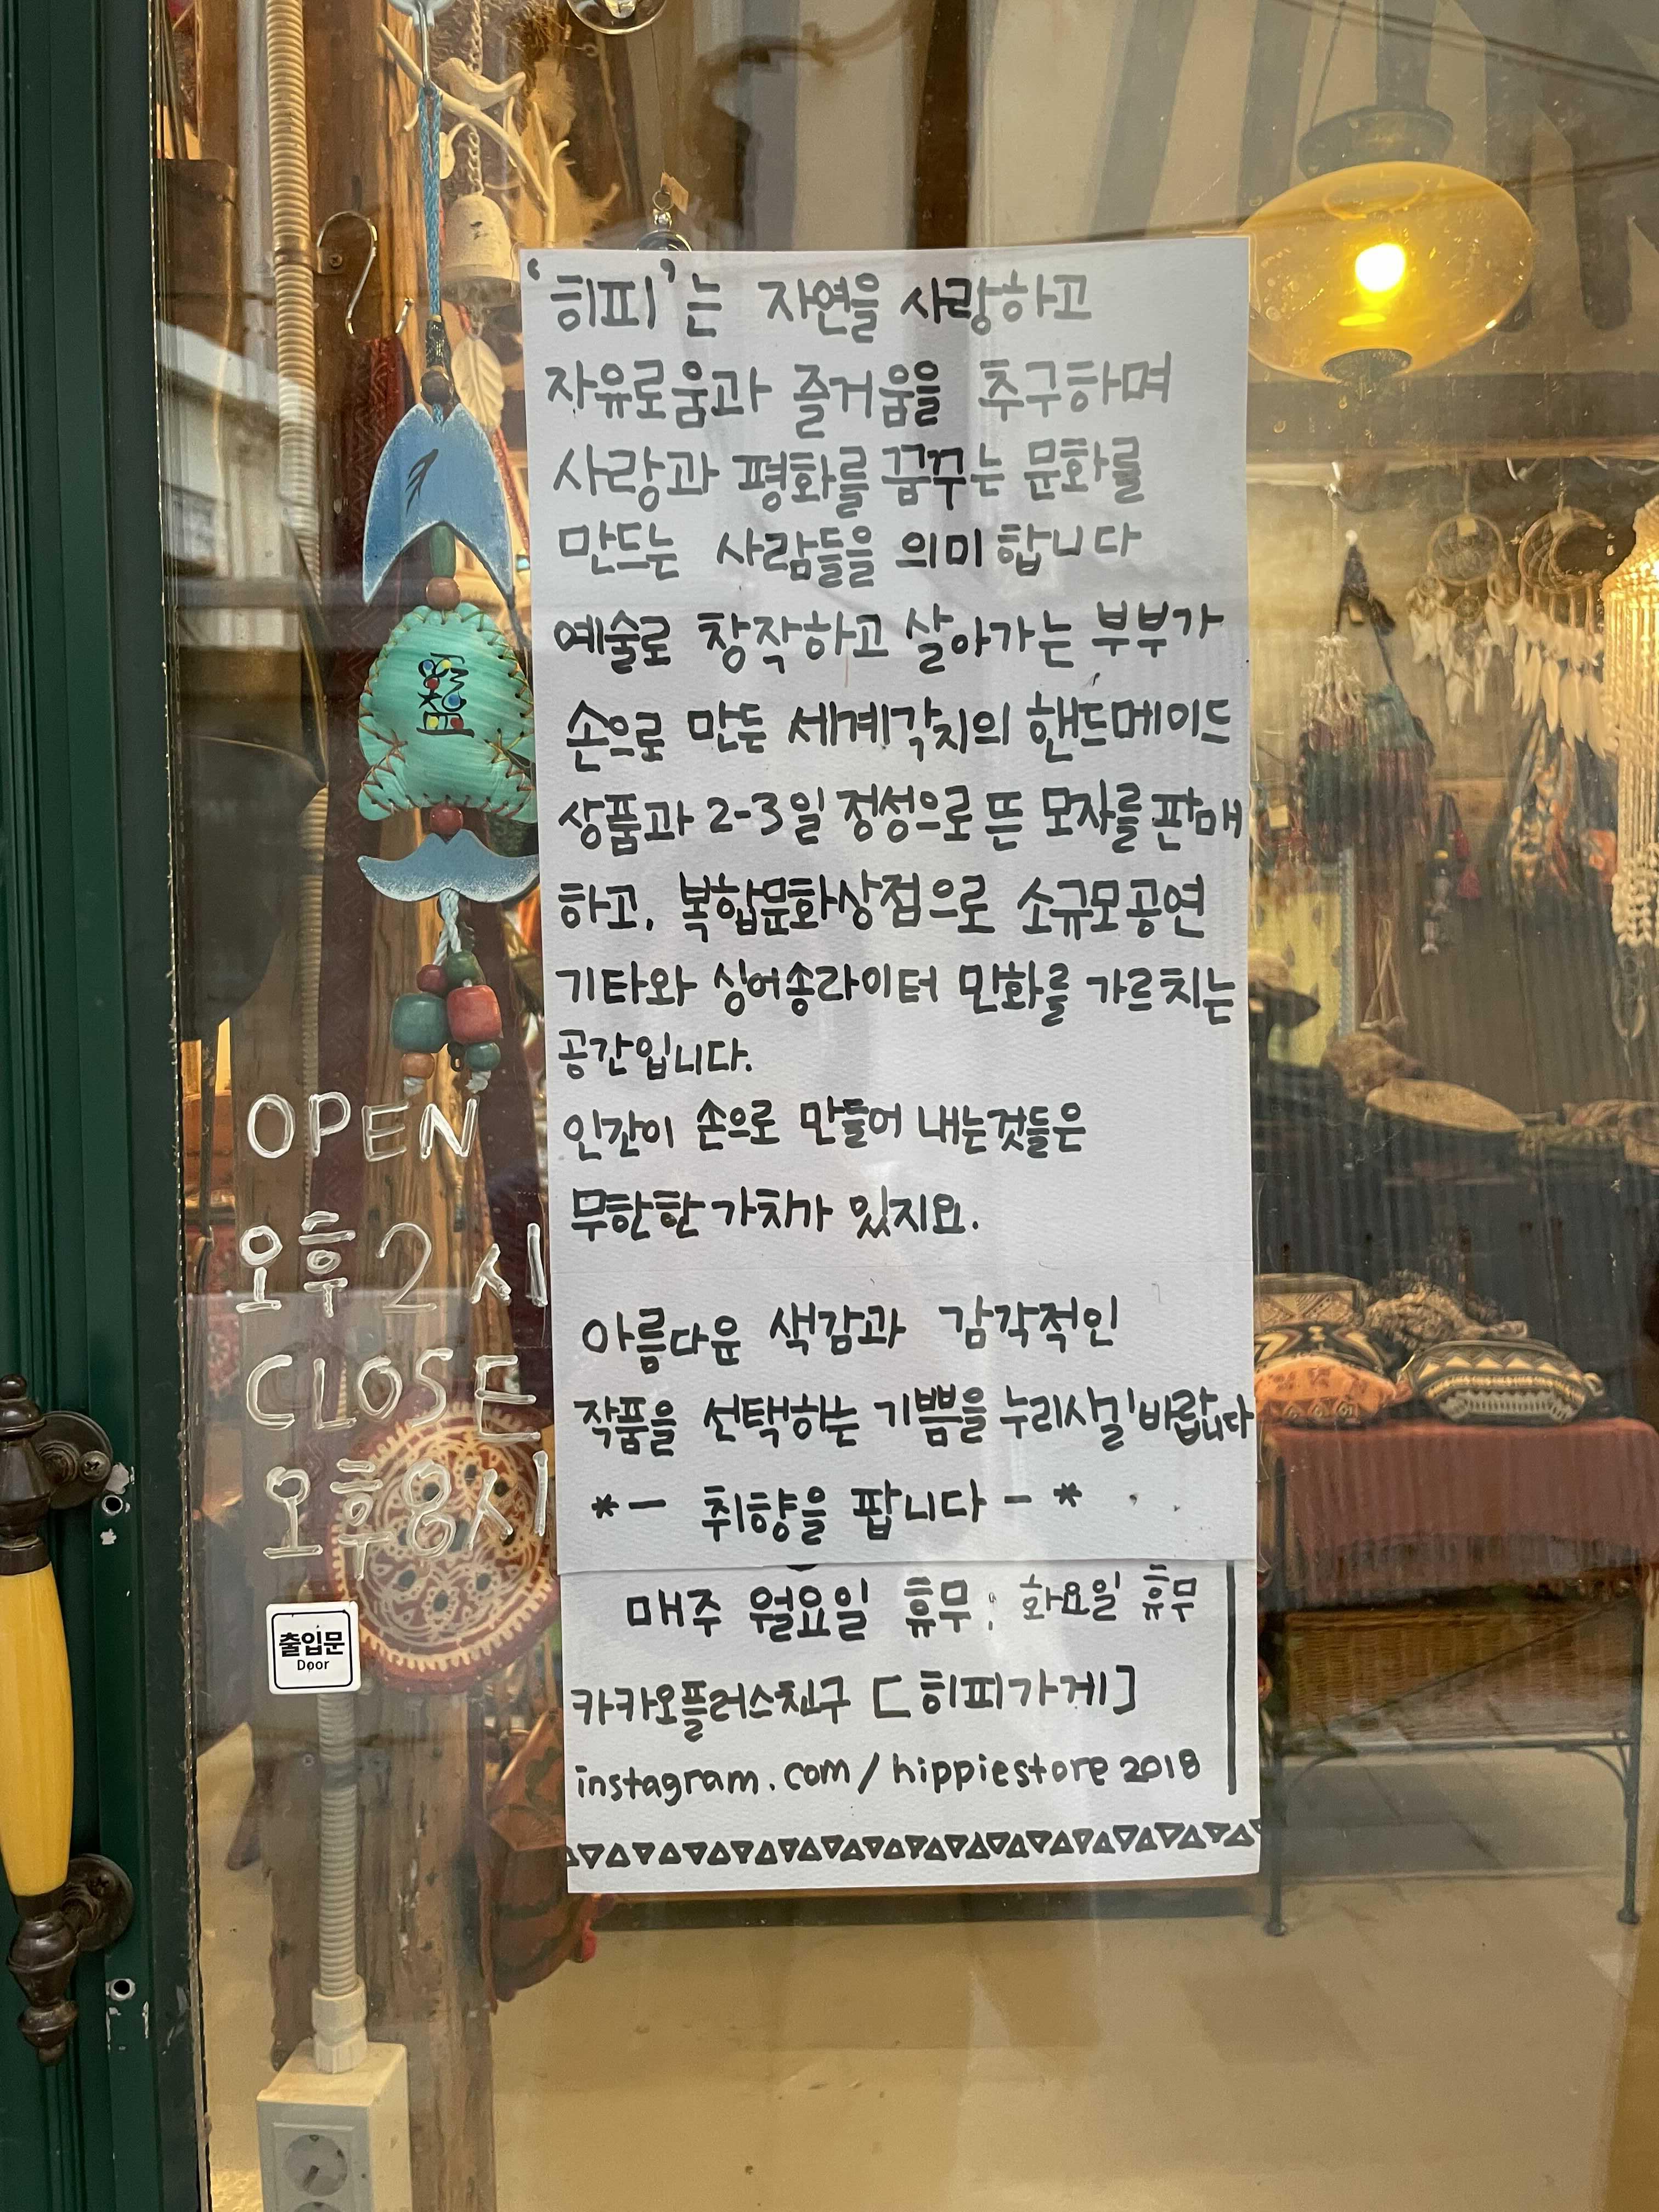 '히피'는 자연을 사랑하고
자유로움과 즐거움을 추구하며
사랑과 평화를 꿈꾸는 문화를
만드는 사람들을 의미합니다
예술로 창작하고 살아가는 부부가
손으로 만든 세계각지의 핸드메이드
상품과 2-3일 정성으로 뜬 모자를 판매
하고, 복합문화상점으로 소규모공연
기타와 싱어송라이터 만화를 가르치는
공간입니다.
인간이 손으로 만들어 내는것들은
무한한 가치가 있지요.
아름다운 색감과 감각적인
작품을 선택하는 기쁨을 누리시길 바랍니다
*- 취향을 팝니다 - *
매주 월요일 휴무, 화요일 휴무
카카오플러스친구 [히피가게]
instagram.com/hippiestore2018
OPEN
오후 2시
CLOSE
오후8시
출입문
Door